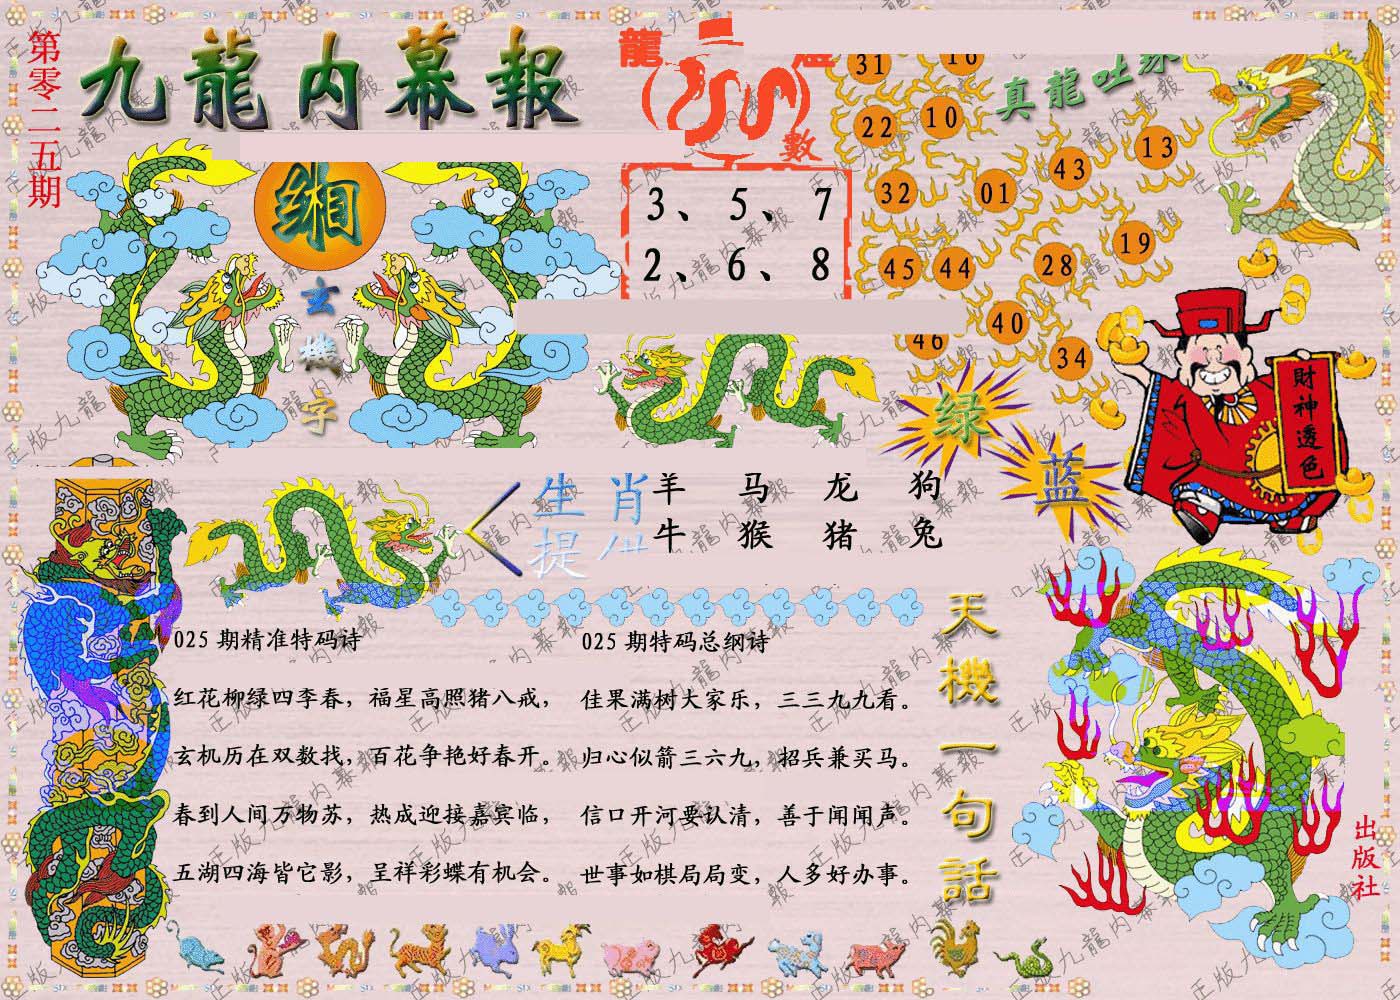 第零二五期
九龍内幕報
龍
數
3、5、7
2、6、8
31
22
10
32
01
43
13
45
44
28
19
46
40
34
真龍吐珠
缃
玄機字
绿
蓝
財神透色
生肖
羊 马 龙 狗
牛 猴 猪 兔
025 期精准特码诗
红花柳绿四季春，福星高照猪八戒，
玄机历在双数找，百花争艳好春开。
春到人间万物苏，热成迎接嘉宾临，
五湖四海皆它影，呈祥彩蝶有机会。
025 期特码总纲诗
佳果满树大家乐，三三九九看。
归心似箭三六九，招兵兼买马。
信口开河要认清，善于闻闻声。
世事如棋局局变，人多好办事。
天機一句話
出版社
正版九龍内幕報